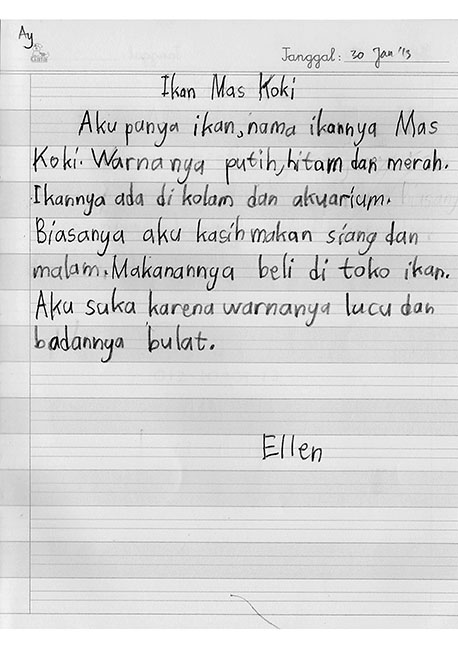 Ay
Tanggal: 30 Jan '13
Ikan Mas Koki
Aku punya ikan, nama ikannya Mas
Koki. Warnanya putih, hitam dan merah.
Ikannya ada di kolam dan akuarium.
Biasanya aku kasih makan siang dan
malam. Makanannya beli di toko ikan.
Aku suka karena warnanya lucu dan
badannya bulat.
Ellen